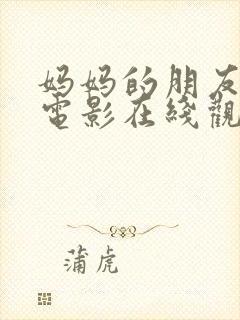 妈妈的朋友
電影在綫觀
蒲虎